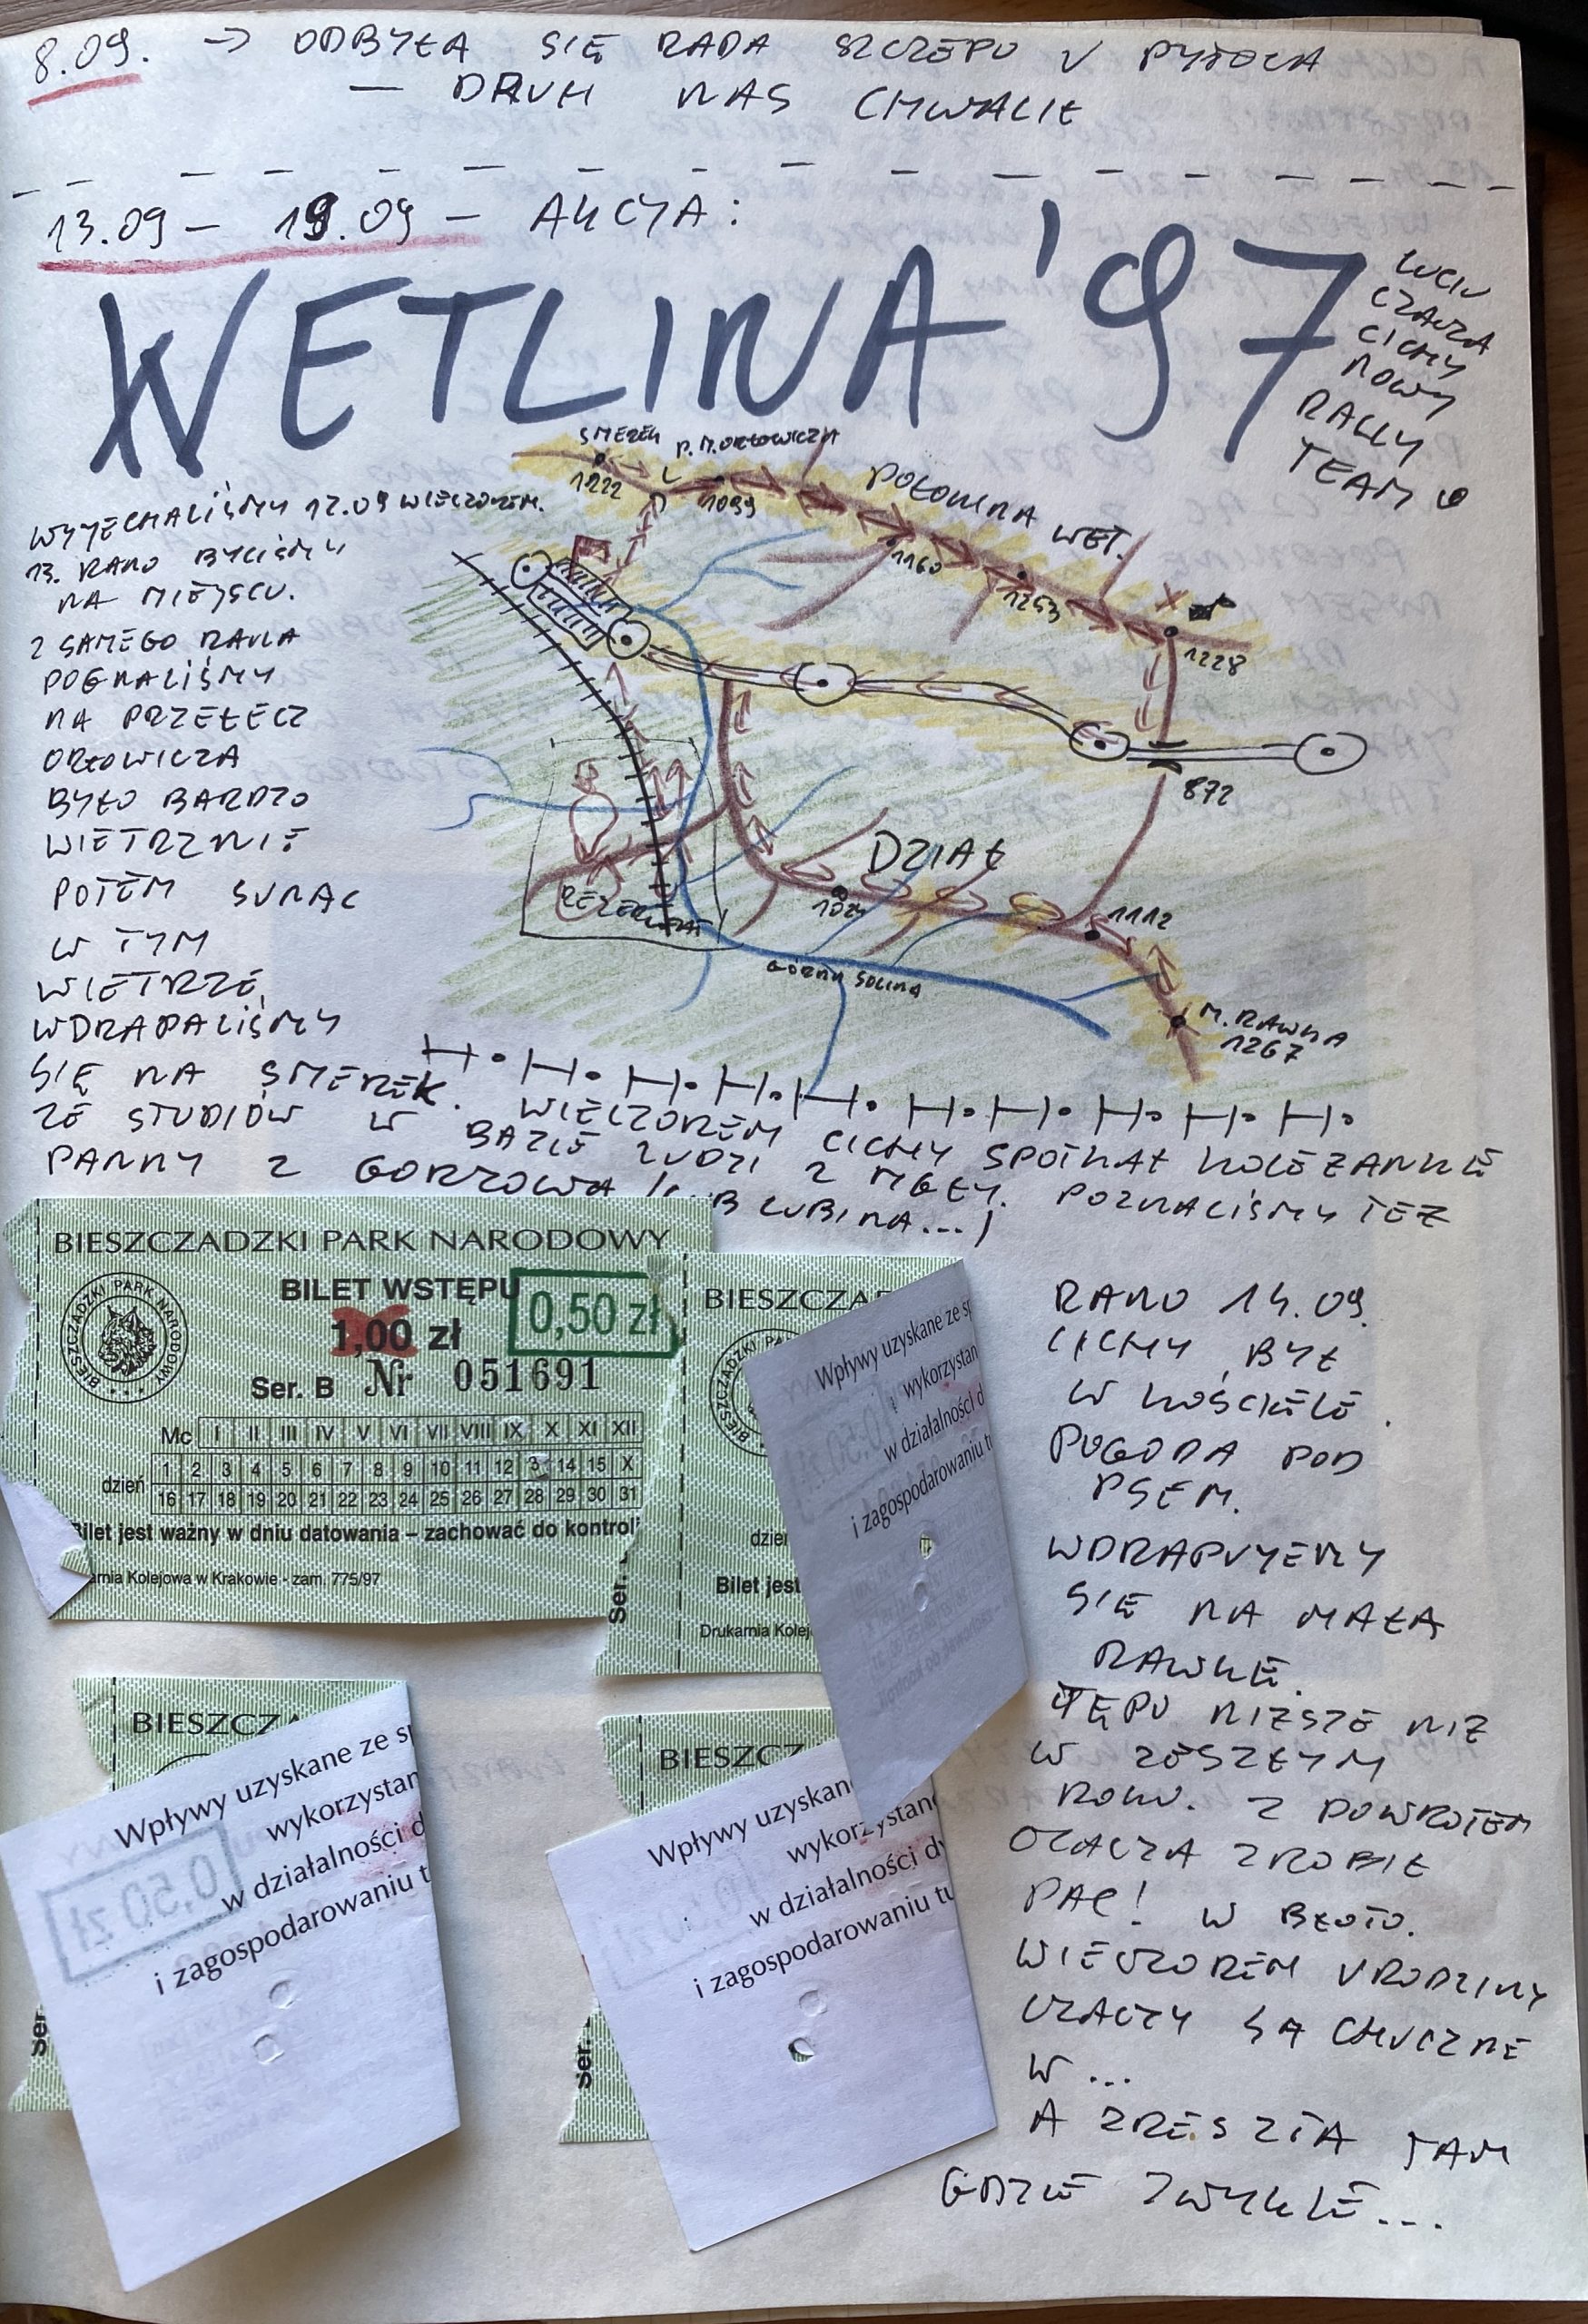 8.09. → ODBYŁA SIĘ RADA SZCZEPU U PYTOCA
— DRUH NAS CHWALIŁ
13.09 – 19.09 – AKCJA:
WETLINA '97
CZACZA
CICHY
NOWY
RALLY
TEAM
WYJECHALIŚMY 12.09 WIECZOREM.
13. RANO BYLIŚMY
NA MIEJSCU.
Z SAMEGO RANA
POGNALIŚMY
NA PRZEŁECZ
ORŁOWICZA
BYŁO BARDZO
WIETRZNIE
POTEM
W TYM
WIETRZE
WDRAPALIŚMY
SIĘ NA SMEREK. WIECZOREM CICHY SPOTKAŁ KOLEŻANKĘ
ZE STUDIÓW W BAZIE LUDZI Z MGŁY. POZNALIŚMY TEŻ
PANNY Z GORZOWA (LUB LUBINA...)
SMEREK
1222
P. M. ORŁOWICZA
1099
POŁONINA WET.
1160
1253
1228
872
DZIAŁ
1112
REZERWAT
GÓRNA SOLINA
M. RAWKA
1267
BIESZCZADZKI PARK NARODOWY
BILET WSTĘPU
1,00 zł
0,50 zł
BIESZCZADZKI PARK NARODOWY
Ser. B Nr 051691
Mc I II III IV V VI VII VIII IX X XI XII
dzień 1 2 3 4 5 6 7 8 9 10 11 12 3 14 15 X
16 17 18 19 20 21 22 23 24 25 26 27 28 29 30 31
Bilet jest ważny w dniu datowania – zachować do kontroli
arnia Kolejowa w Krakowie - zam. 775/97
Ser.
BIESZCZA
dzień
Bilet jest
Drukarnia Kolej
Wpływy uzyskane ze sp
wykorzystan
w działalności d
i zagospodarowaniu t
RANO 14.09.
CICHY BYŁ
W KOŚCIELE.
POGODA POD
PSEM.
WDRAPUJEMY
SIĘ NA MAŁA
RAWKĘ.
TĘPO NIŻSZE NIŻ
W ZESZŁYM
ROKU. Z POWROTEM
CZACZA ZROBIŁ
PAC! W BŁOTO.
WIECZOREM URODZINY
CZACZY SĄ CHUCZNE
W ...
A ZRESZTĄ TAM
GDZIE ZWYKLE...
BIESZCZA
Wpływy uzyskane ze sp
wykorzystan
w działalności d
i zagospodarowaniu t
0,50 zł
Ser.
BIESZCZ
Wpływy uzyskan
wykorzystane
w działalności dy
i zagospodarowaniu tu
Ser.